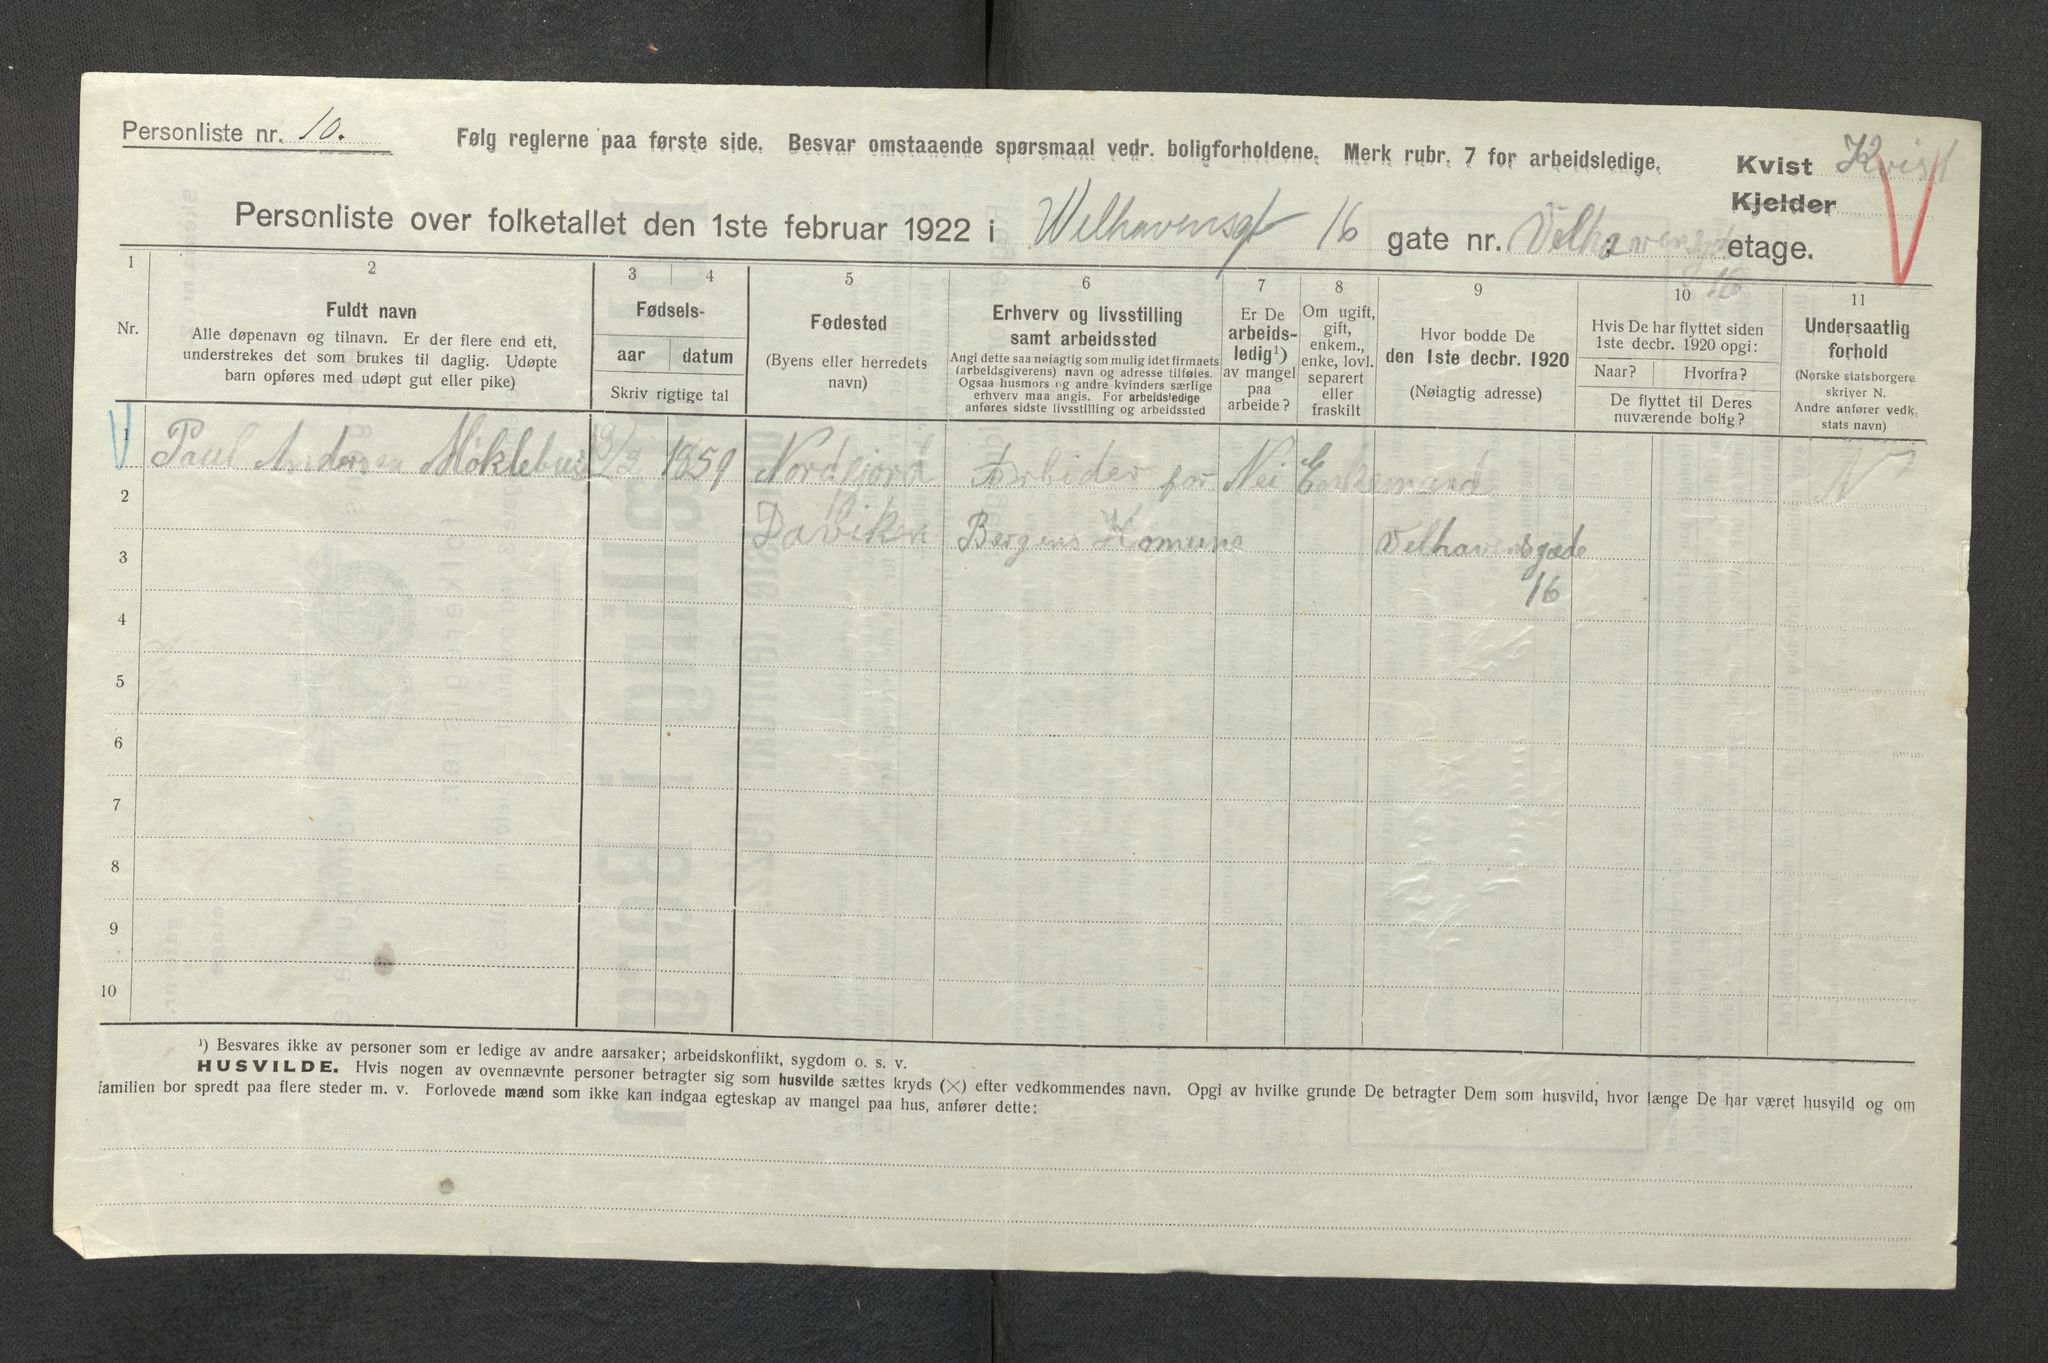 Personliste nr. 10.
Følg reglerne paa første side. Besvar omstaaende spørsmaal vedr. boligforholdene. Merk rubr. 7 for arbeidsledige.
Kvist Kvist
Kjelder
Personliste over folketallet den 1ste februar 1922 i Welhavensgt 16 gate nr. Velhavensgde 16 etage.
1 2 3 4 5 6 7 8 9 10 11
Nr.
Fuldt navn
Alle døpenavn og tilnavn. Er der flere end ett,
understrekes det som brukes til daglig. Udøpte
barn opføres med udøpt gut eller pike)
Fødsels-
aar datum
Skriv rigtige tal
Fødested
(Byens eller herredets
navn)
Erhverv og livsstilling
samt arbeidssted
Angi dette saa nøiagtig som mulig idet firmaets
(arbeidsgiverens) navn og adresse tilføies.
Ogsaa husmors og andre kvinders særlige
erhverv maa angis. For arbeidsledige
anføres sidste livsstilling og arbeidssted
Er De
arbeids-
ledig¹)
av mangel
paa
arbeide?
Om ugift,
gift,
enkem.,
enke, lovl.
separert
eller
fraskilt
Hvor bodde De
den 1ste decbr. 1920
(Nøiagtig adresse)
Hvis De har flyttet siden
1ste decbr. 1920 opgi:
Naar? Hvorfra?
De flyttet til Deres
nuværende bolig?
Undersaatlig
forhold
(Norske statsborgere
skriver N.
Andre anfører vedk.
stats navn)
1 Paul Andersen Møklebust /2 1859 Nordfjord Arbider for Nei Enkemand N
2 Daviken Bergens Komune Velhavensgade
3 16
4
5
6
7
8
9
10
¹) Besvares ikke av personer som er ledige av andre aarsaker; arbeidskonflikt, sygdom o. s. v.
HUSVILDE. Hvis nogen av ovennævnte personer betragter sig som husvilde sættes kryds (×) efter vedkommendes navn. Opgi av hvilke grunde De betragter Dem som husvild, hvor længe De har været husvild og om
familien bor spredt paa flere steder m. v. Forlovede mænd som ikke kan indgaa egteskap av mangel paa hus, anfører dette: